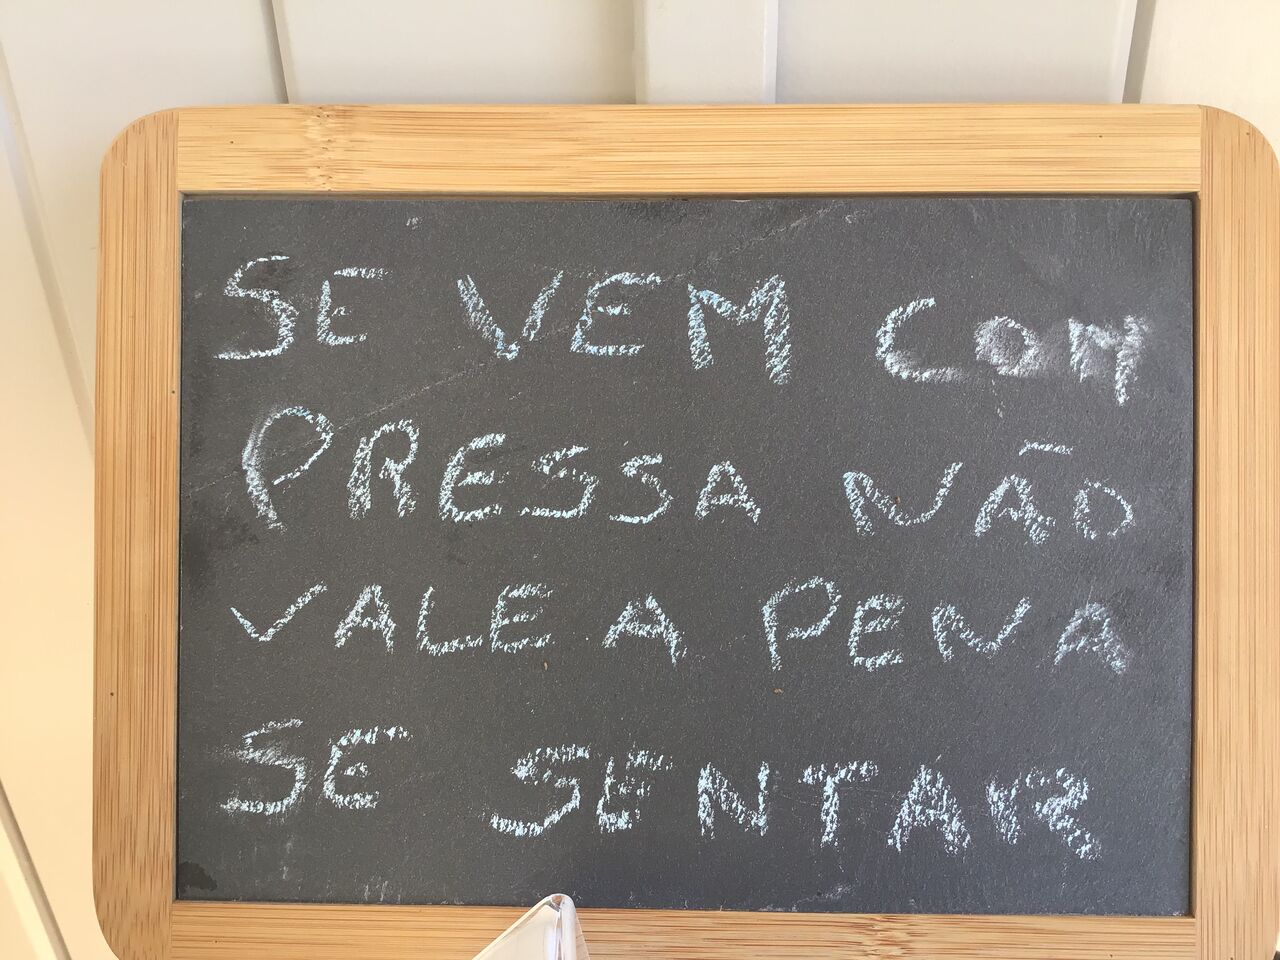 SE VEM COM
PRESSA NÃO
VALE A PENA
SE SENTAR